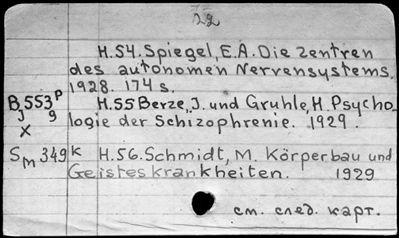 22
H.54. Spiegel, E.A. Die Zentren
des autonomen Nervensystems.
1928. 174 s.
B 553 P H.55 Berze, J. und Gruhle, H. Psycho-
J 9 logie der Schizophrenie. 1929.
X
Sm 349 K H.56. Schmidt, M. Körperbau und
Geisteskrankheiten. 1929
см. след. карт.